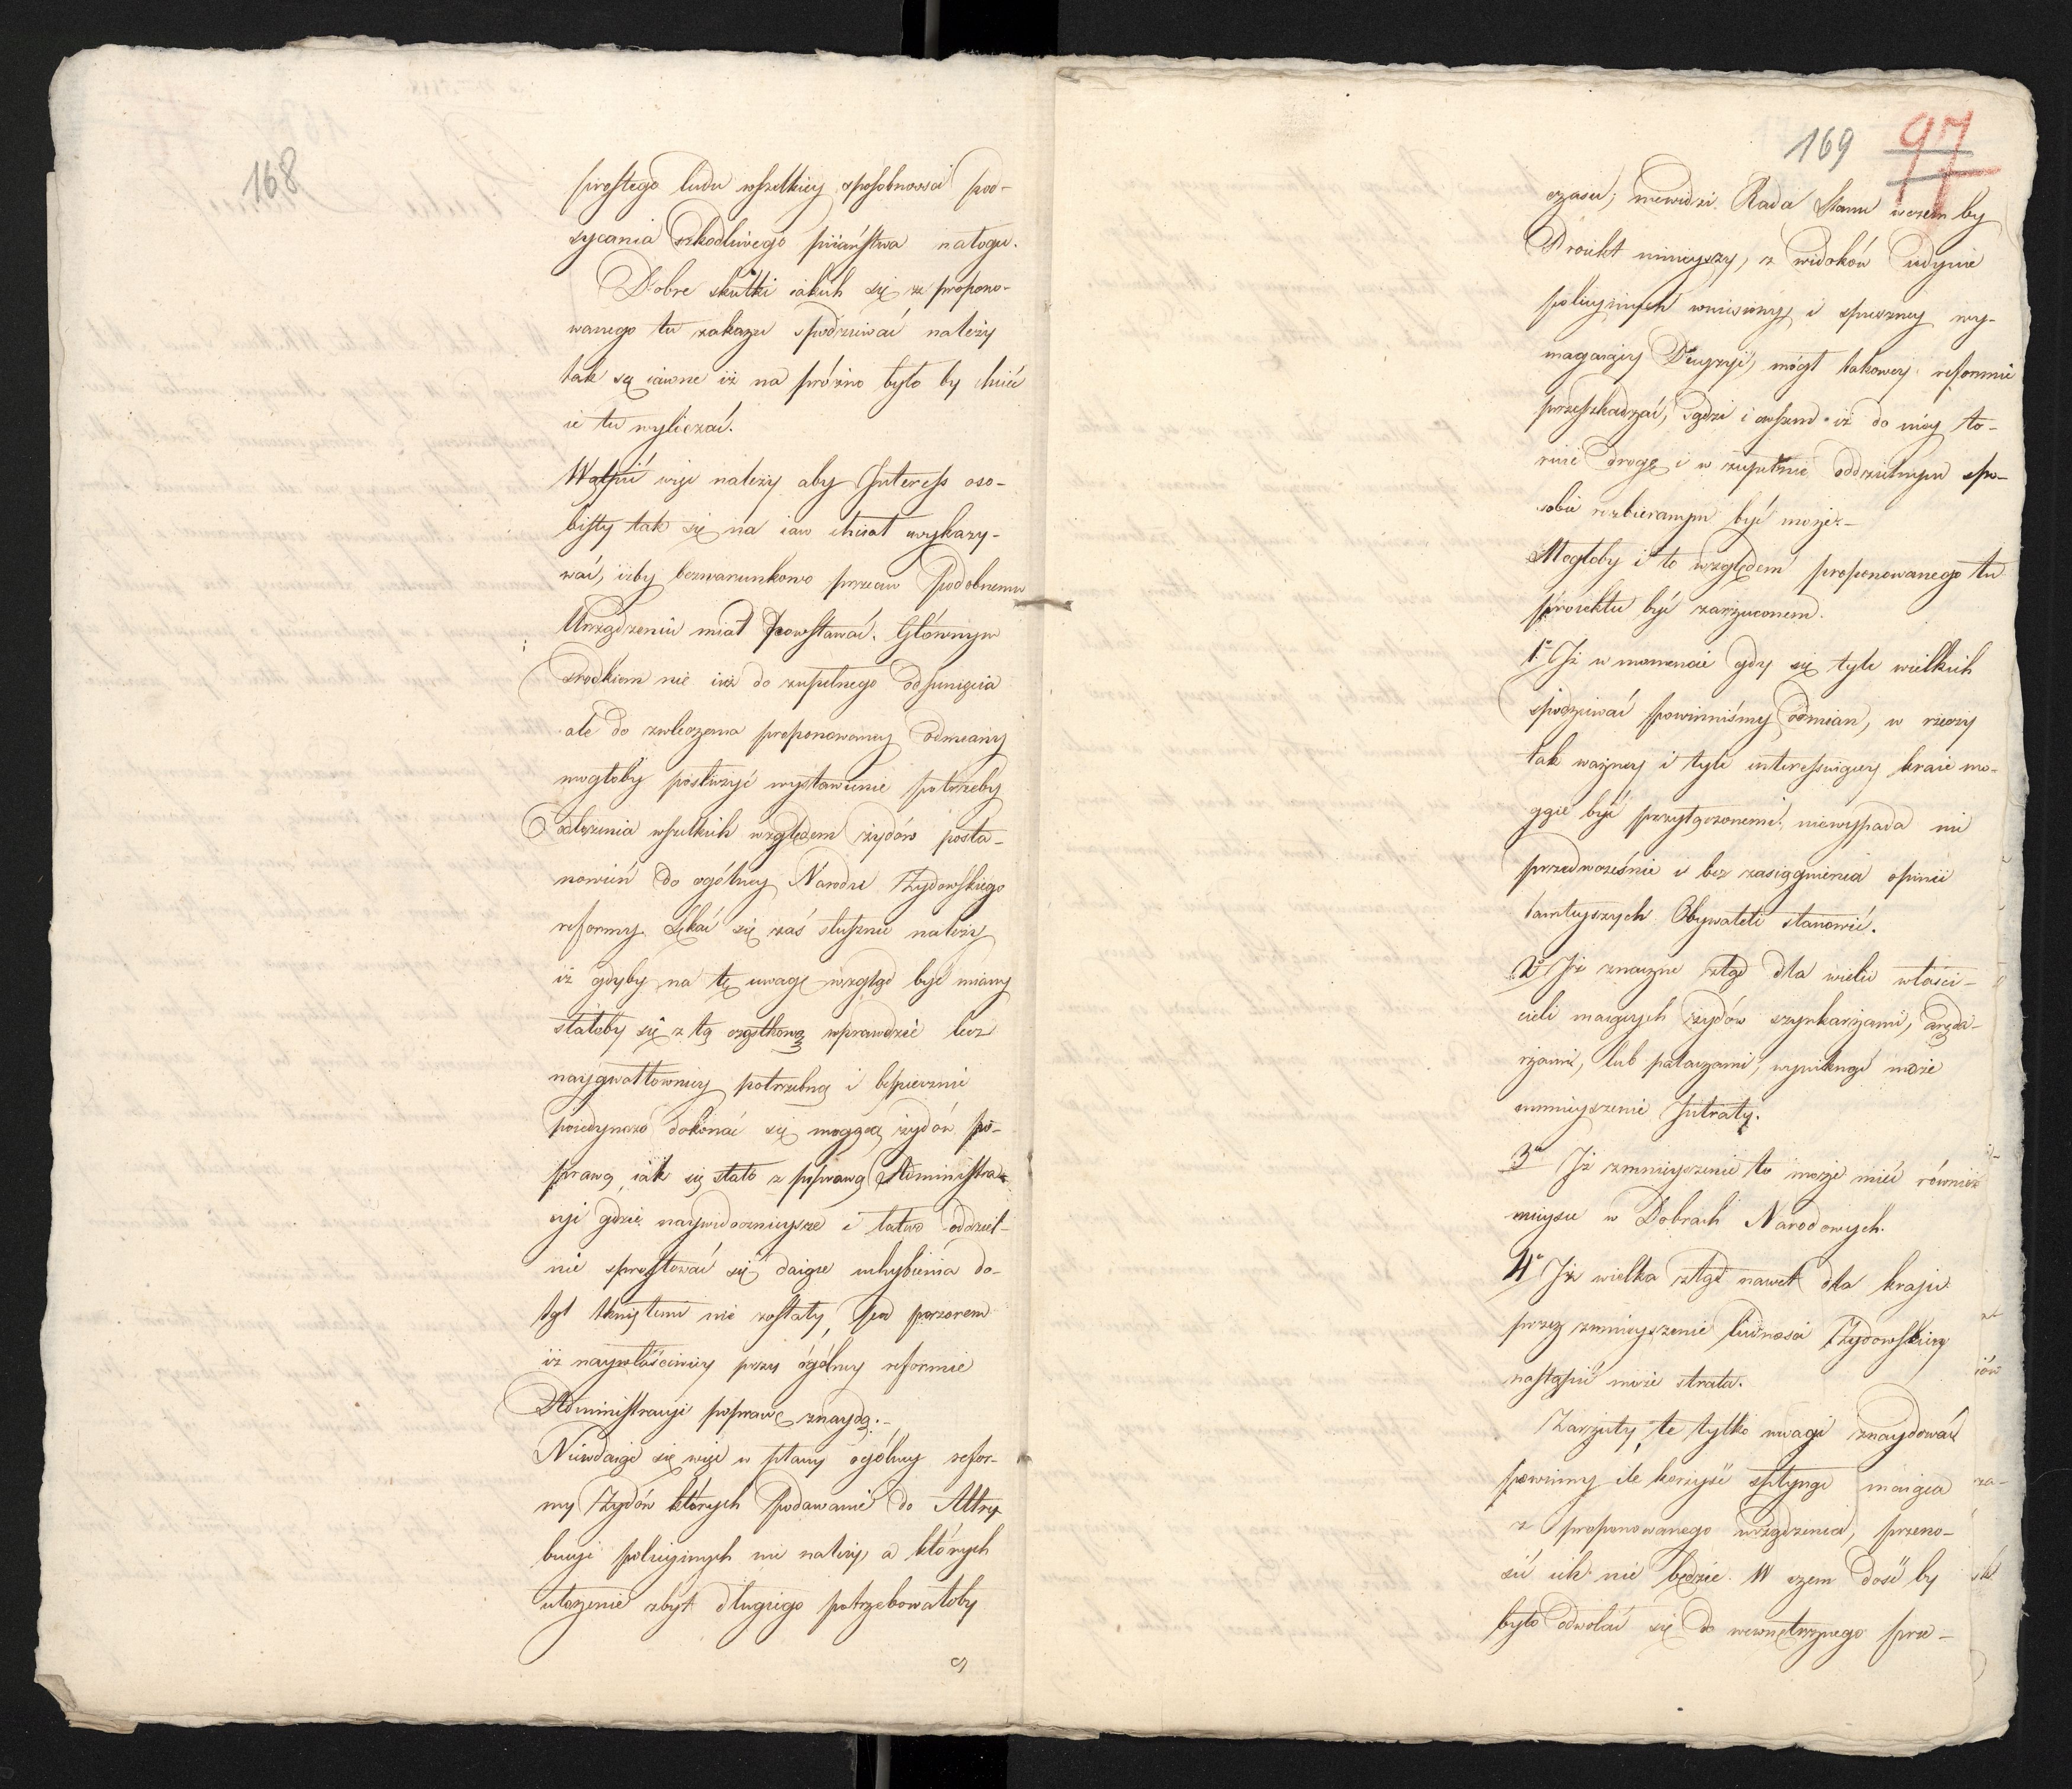 168
prostego ludu wszelkiey sposobnosci pod-
sycania szkodliwego piiaństwa nałogu.
Dobre skutki iakich się ze propono-
wanego tu zakazu spodziewać należy
tak są iawne iż na próżno było by chcieć
ie tu wyliczać.
Wątpić więc należy aby Interess oso-
bisty tak się na iaw chciał wykazy-
wać, iżby bezwarunkowo przeciw podobnemu
Urządzeniu miał powstawać. Głównym
srodkiem nie iuż do zupełnego odsunięcia
ale do zwleczenia proponowaney odmiany
mogłoby posłużyć wystawienie potrzeby
odłożenia wszelkich względem żydów posta-
nowień do ogólney Narodu Żydowskiego
reformy. Lękać się zaś słusznie należy
iż gdyby na tę uwagę wzgląd był miany
stałoby się z tą cząstkową wprawdzie lecz
naygwałtowniey potrzebną i bespiecznie
poiedynczo dokonać się mogącą żydów po-
prawą, iak się stało z poprawą Administra-
cyi gdzie naywidocznieysze i łatwo oddziel-
nie sprostować się daiące uchybienia do-
tąd tkniętemi nie zostały, pod pozorem
iż naywłaściwiey przy ogólney reformie
Administracyi poprawę znaydą.-
Niewdaiąc się więc w plany ogólney refor-
my Żydów których podawanie do Attry-
bucyi policyinych nie należy, a których
ułożenie zbyt długiego potrzebowałoby
169 97
czasu; niewidzi Rada Stanu w czem by
Proiekt ninieyszy, z widoków iedynie
policyinych wniesiony, i spieszney wy-
magaiący Decyzyi, mógł takowey reformie
przeszkadzać, gdzi i owszem iż do niey to-
ruie drogę i w zupełnie oddzielnym spo-
sobie rozbieranym być może.-
Mogłoby i to względem proponowanego tu
proiektu być zarzuconem.
1o Iż w momencie gdy się tyle wielkich
spodziewać powinniśmy odmian, w rzeczy
tak ważney i tyle interessuiącey kraie mo-
gące być przyłączonemi, niewypada nic
przedwcześnie i bez zasiągnienia opinii
tamteyszych Obywateli stanowić.
2o Iż znaczne ztąd dla wielu właści-
cieli maiących żydów szynkarzami, aręda-
rzami, lub pataczami, wyniknąć może
zmnieyszenie Intraty.
3o Iż zmnieyszenie to może mieć również
mieysce w Dobrach Narodowych.
4o Iż wielka ztąd nawet dla kraju
przez zmnieyszenie ludności Żydowskiey
nastąpić może strata.
Zarzuty te tylko uwagi znaydować
powinny ile korzyści spłynąć maiącea
z proponowanego urządzenia, przeno-
sić ich nie będzie. W czem dość by
było odwołać się do wewnętrznego prze-